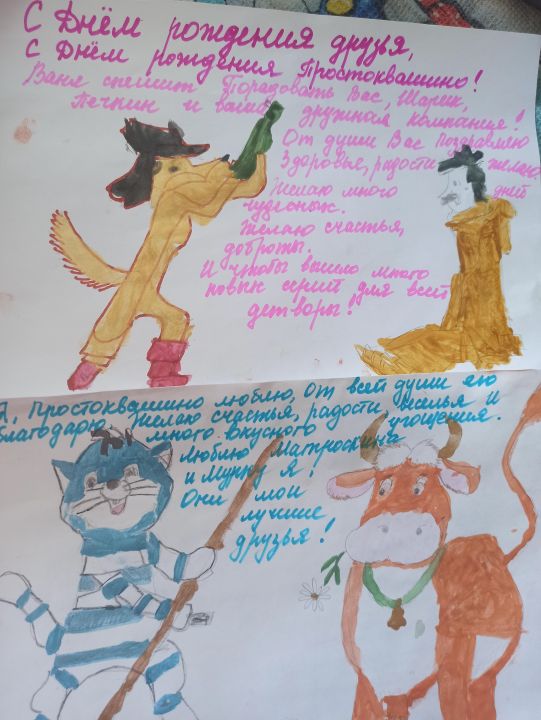 С Днём рождения друзья,
С Днём рождения Простоквашино!
Ваня спешит Порадовать Вас, Шарик,
Печкин и ваша дружная компания!
От души Вас Поздравляю
Здоровья, радости желаю,
Желаю много дней
чудесных.
Желаю счастья,
доброты.
И чтобы вышло много
новых серий для всей
детворы!
Я, Простоквашино люблю, От всей души его
благодарю. Желаю счастья, радости веселья и
много вкусного угощения.
Люблю Матроскина
и Мурку я!
Они мои
лучшие
друзья!